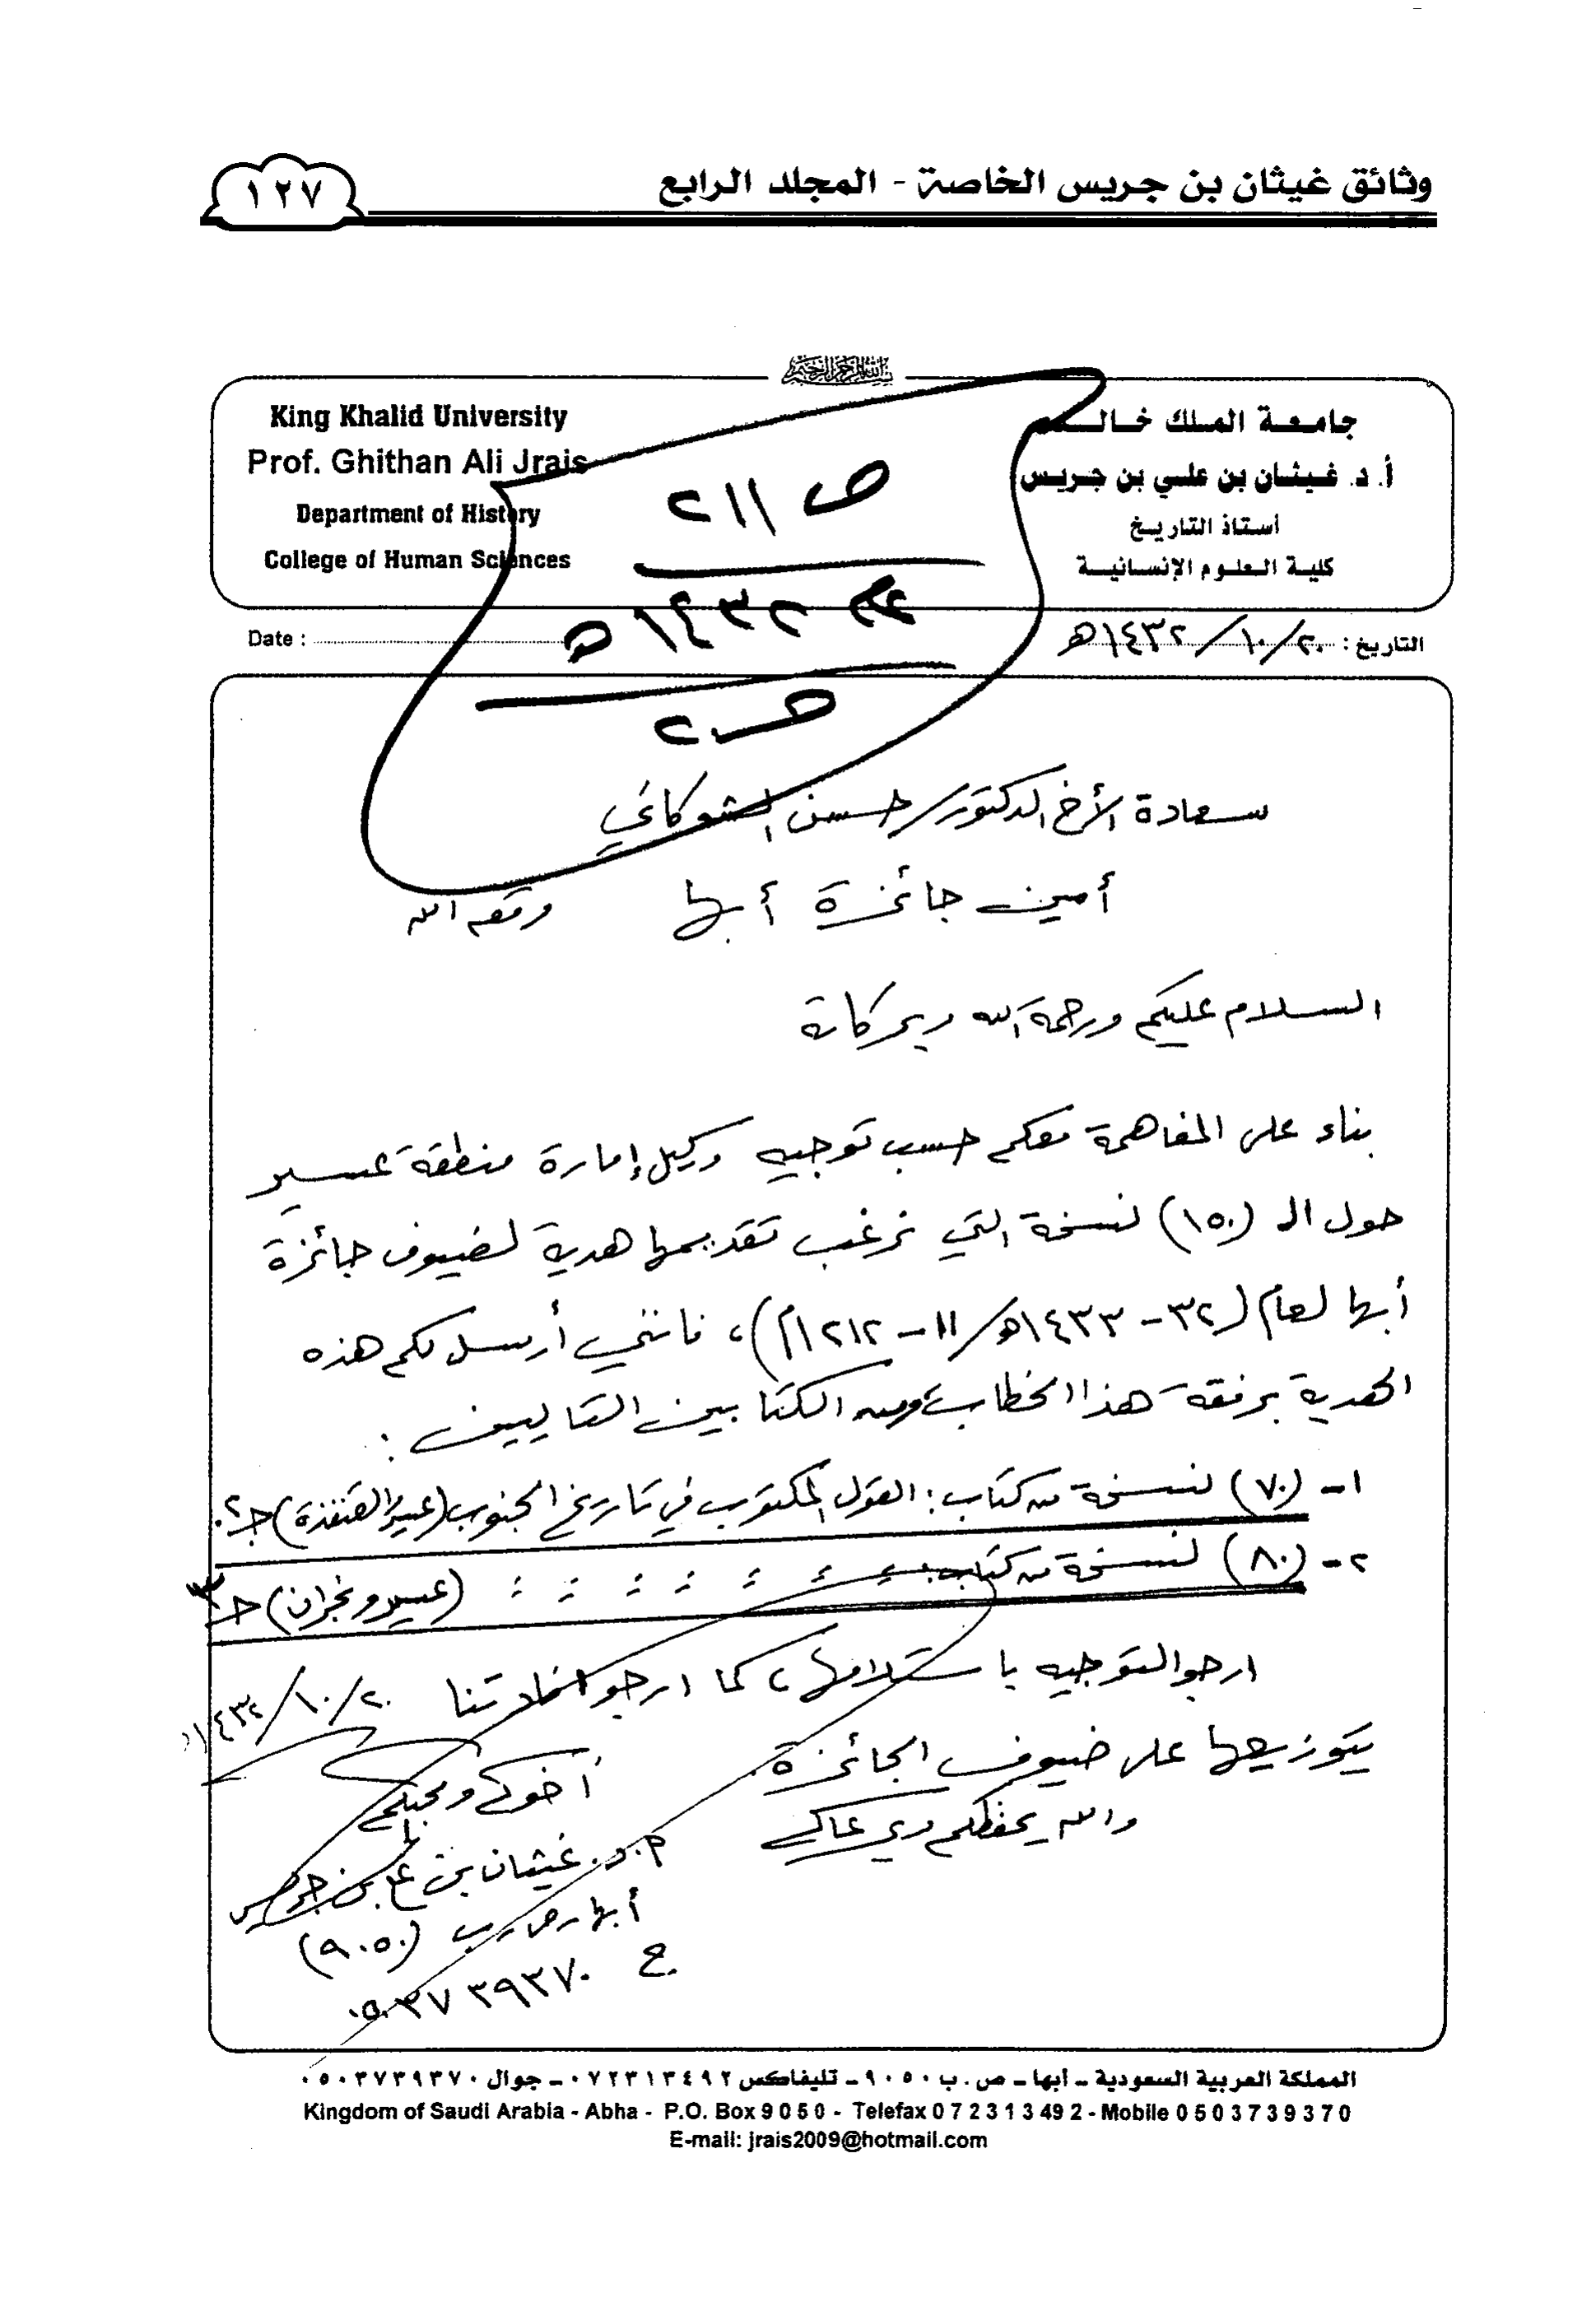 وثائق غيثان بن جريس الخاصة - المجلد الرابع
١٢٧
بسم الله الرحمن الرحيم
جامعة الملك خالد
أ. د. غيثان بن علي بن جريس
أستاذ التاريخ
كلية العلوم الإنسانية
King Khalid University
Prof. Ghithan Ali Jrais
Department of History
College of Human Sciences
ص ٢١١
١٤٣٢ هـ
التاريخ : ٢٠/١٠/١٤٣٢هـ
Date :
سعادة الأخ الدكتور/ حسن الشوكاني
أمين جائزة أبها وفقه الله
السلام عليكم ورحمة الله وبركاته
بناء على المفاهمة معكم حسب توجيه وكيل إمارة منطقة عسير
حول الـ (١٥٠) نسخة التي نرغب تقديمها هدية لضيوف جائزة
أبها لعام (٣٢ - ١٤٣٣هـ/ ١١ - ٢١٢ام)، فانني أرسل لكم هذه
الهدية برفقة هذا الخطاب، ومن الكتابين التاليين :
١- (٧٠) نسخة من كتاب : القول المكتوب في تاريخ الجنوب (عسير والقنفذة) جـ٢.
٢- (٨٠) نسخة من كتاب : : : : : : : (عسير ونجران) جـ٣
ارجو التوجيه باستلامها، كما ارجو افادتنا
٢٠/١٠/١٤٣٢
بتوزيعها على ضيوف الجائزة.
والله يحفظكم ويرعاكم
أخوكم ومحبكم
أ. د. غيثان بن علي بن جريس
أبها ص.ب (٩٠٥٠)
ج ٠٥٠٣٧٣٩٣٧٠
المملكة العربية السعودية - أبها - ص. ب ٩٠٥٠ - تليفاكس ٠٧٢٣١٣٤٩٢ - جوال ٠٥٠٣٧٣٩٣٧٠
Kingdom of Saudi Arabia - Abha - P.O. Box 9 0 5 0 - Telefax 0 7 2 3 1 3 49 2 - Mobile 0 5 0 3 7 3 9 3 7 0
E-mail: jrais2009@hotmail.com